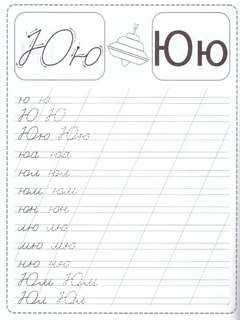 Юю Юю
ю ю
Ю Ю
Юю Юю
юа юа
юл юл
юм юм
юн юн
лю лю
мю мю
ню ню
Юм Юм
Юл Юл